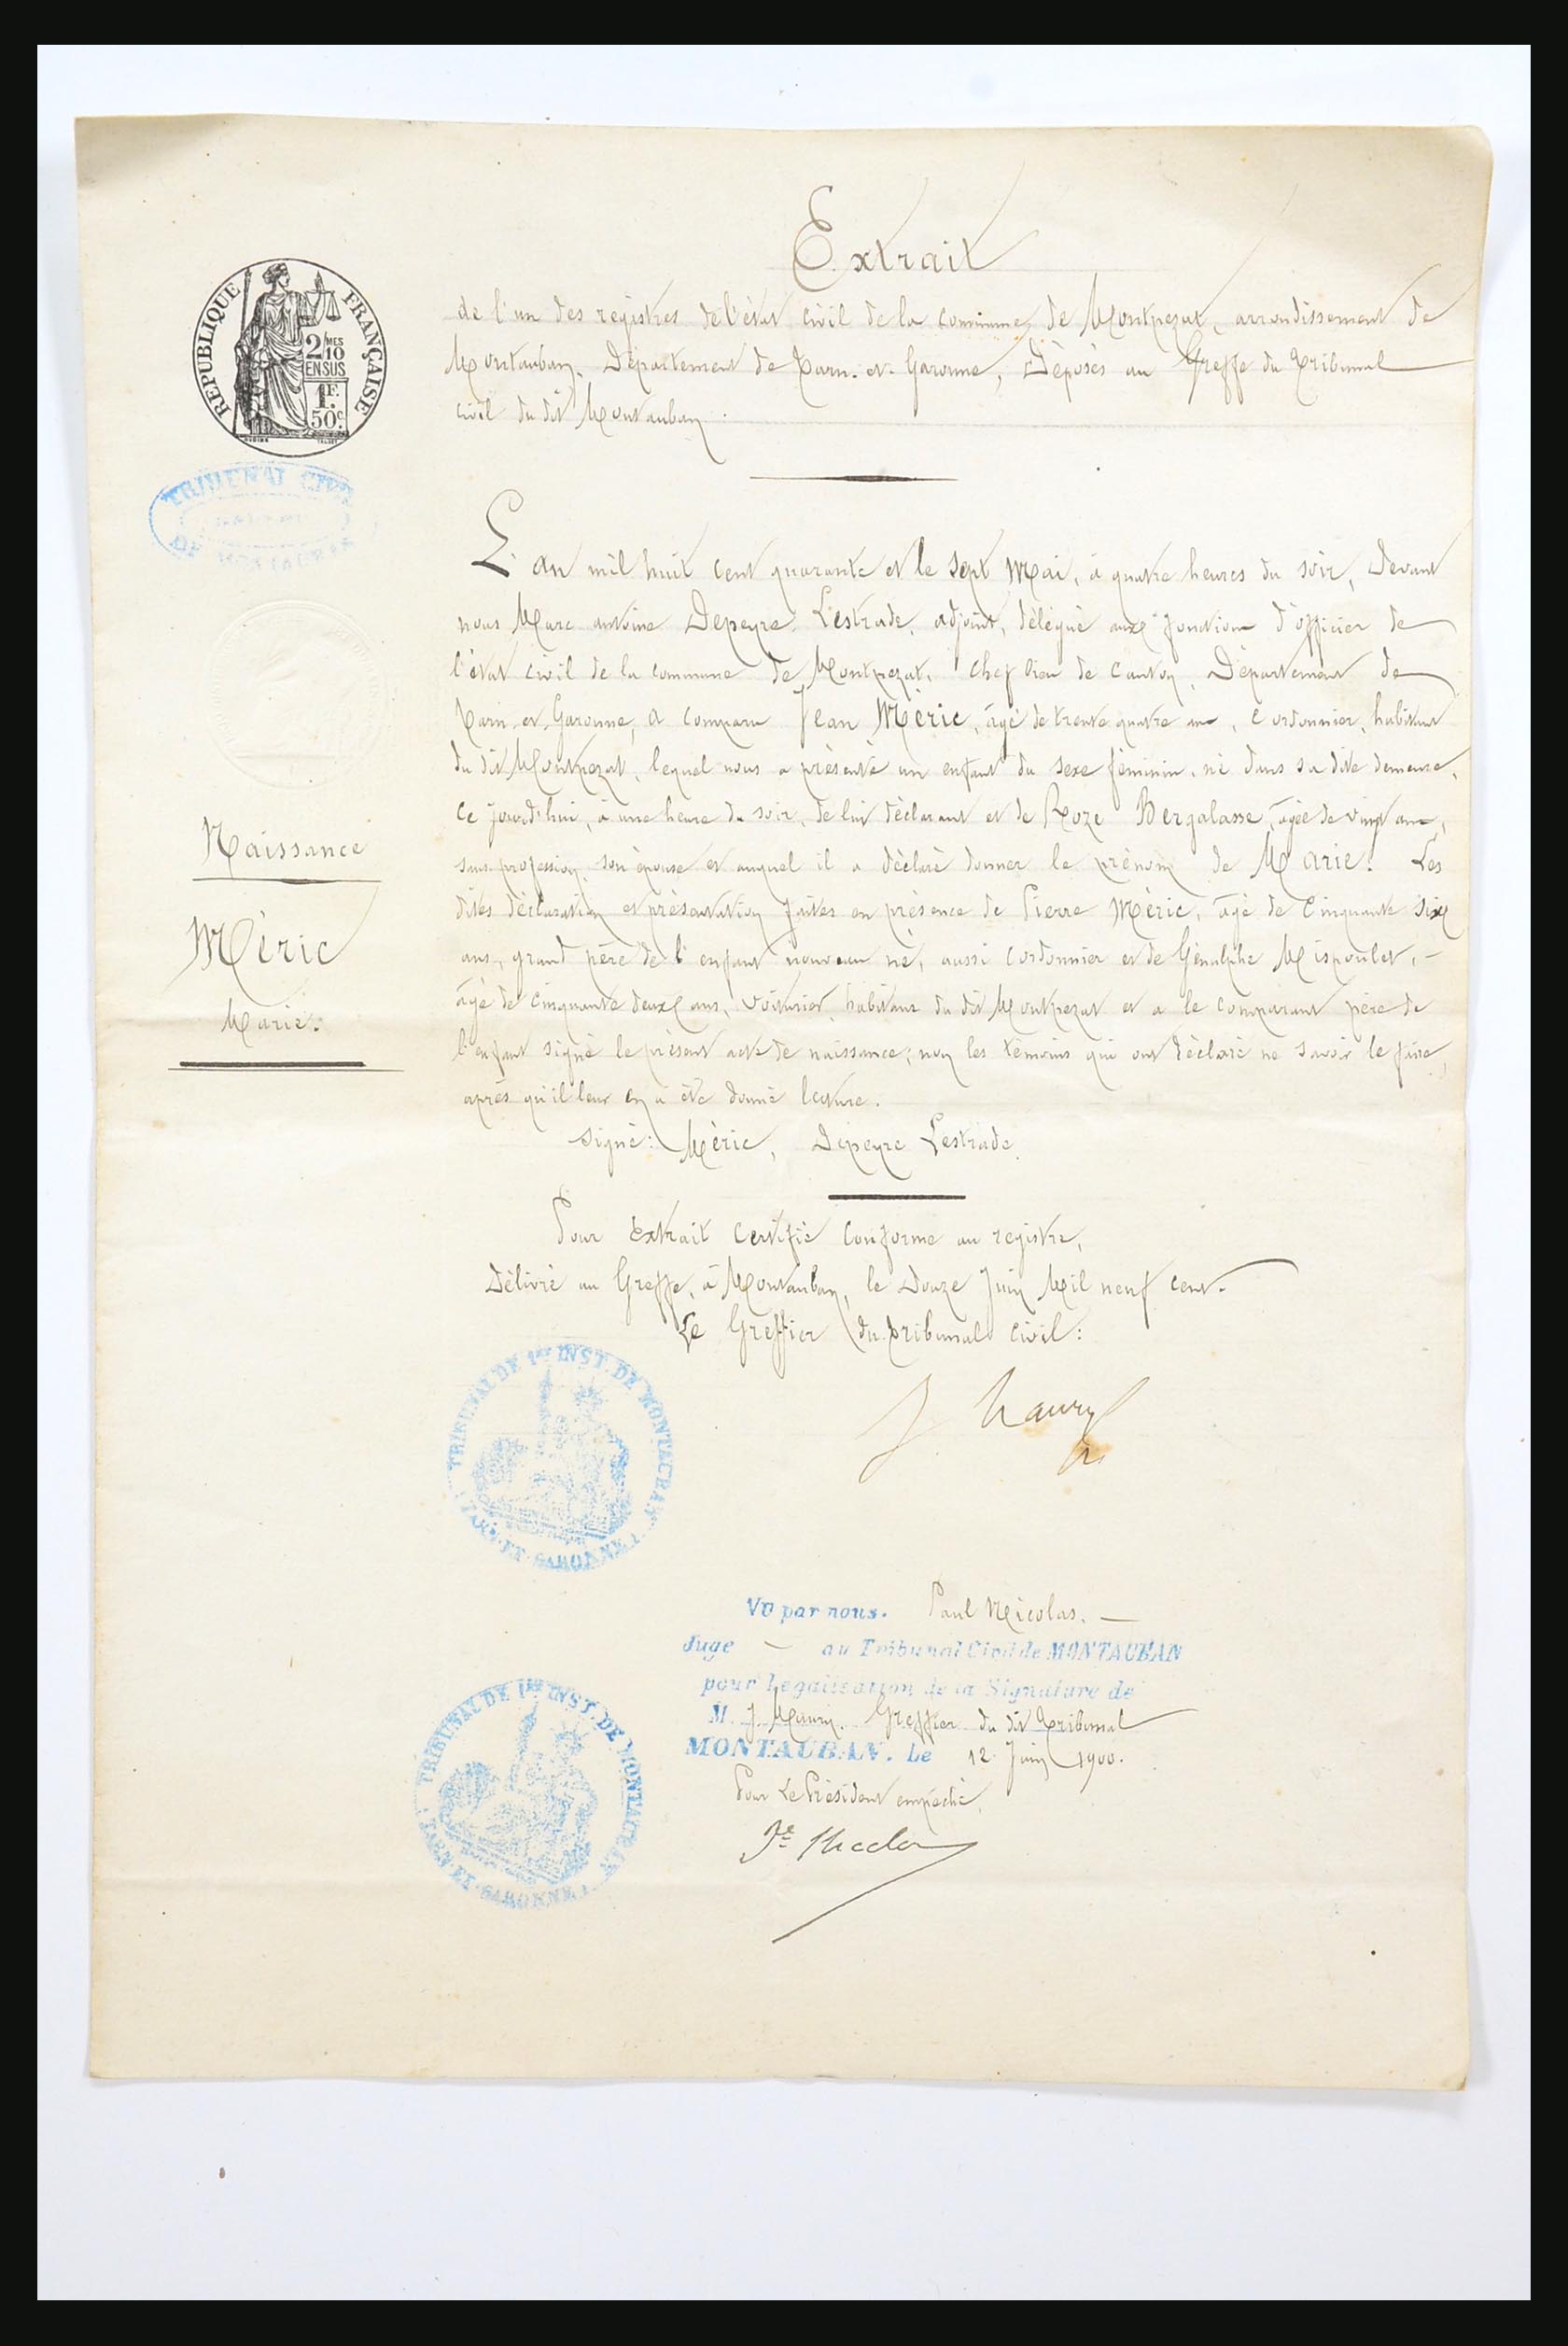 Extrait
de l'un des registres de l'état civil de la commune de Montpezat, arrondissement de
Montauban, Département de Tarn-et-Garonne, Déposés au Greffe du Tribunal
civil du dit Montauban.
RÉPUBLIQUE FRANÇAISE
2/MES
10
EN SUS
1F.
50c.
TRIBUNAL CIVIL
DE MONTAUBAN
L'an mil huit cent quarante et le sept Mai, à quatre heures du soir, Devant
nous Marc antoine Depeyre Lestrade, adjoint, délégué aux fonction d'officier de
l'état civil de la commune de Montpezat, chef lieu de canton, Département de
Tarn et Garonne, a comparu Jean Méric, âgé de trente quatre ans, cordonnier, habitant
du dit Montpezat, lequel nous a présenté un enfant du sexe féminin, né dans sa dite demeure,
ce jourd'hui, à une heure du soir, de lui déclarant et de Roze Bergalasse, âgée de vingt ans,
sans profession, son épouse et auquel il a déclaré donner le prénom de Marie. Les
dites déclaration et présentation faites en présence de Pierre Méric, âgé de cinquante six
ans, grand père de l'enfant nouveau né, aussi cordonnier et de Génulphe Mispoulet, -
âgé de cinquante deux ans, voiturier, habitans du dit Montpezat et a le comparant père de
l'enfant signé le présent acte de naissance; non les témoins qui ont déclaré ne savoir le faire,
après qu'il leur en a été donné lecture.
Signé: Méric, Depeyre Lestrade.
Naissance
Méric
Marie.
Pour Extrait certifié conforme au registre,
Délivré au Greffe, à Montauban, le Douze Juin Mil neuf cent.
Le Greffier du tribunal civil:
J Maury
TRIBUNAL DE 1ère INST. DE MONTAUBAN
(TARN-ET-GARONNE)
Vu par nous. Paul Nicolas. —
Juge — au Tribunal Civil de MONTAUBAN
pour Légalisation de la Signature de
M. J. Maury. Greffier du dit Tribunal
MONTAUBAN. Le 12 Juin 1900.
Pour Le Président empêché,
TRIBUNAL DE 1ère INST. DE MONTAUBAN
(TARN-ET-GARONNE)